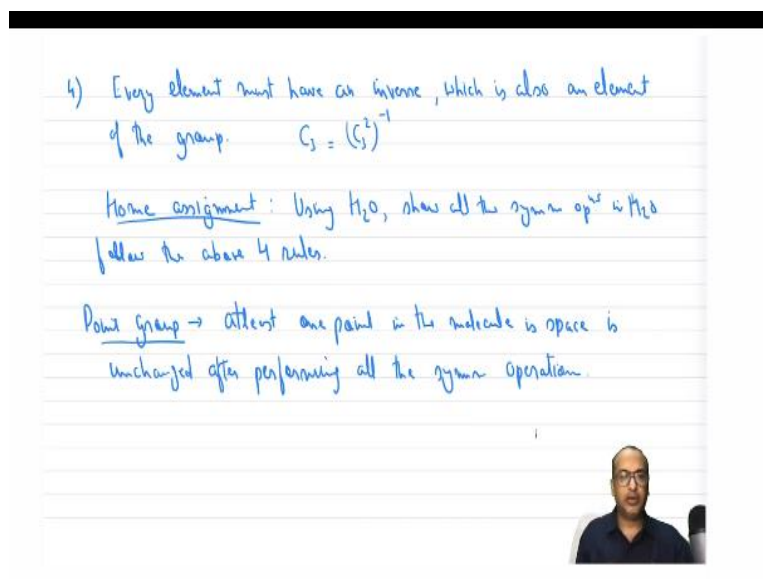 4) Every element must have an inverse, which is also an element
of the group. C₃ = (C₃²)⁻¹
Home assignment : Using H₂O, show all the symm opⁿˢ in H₂O
follow the above 4 rules.
Point Group → atleast one point in the molecule is space is
unchanged after performing all the symm operation.